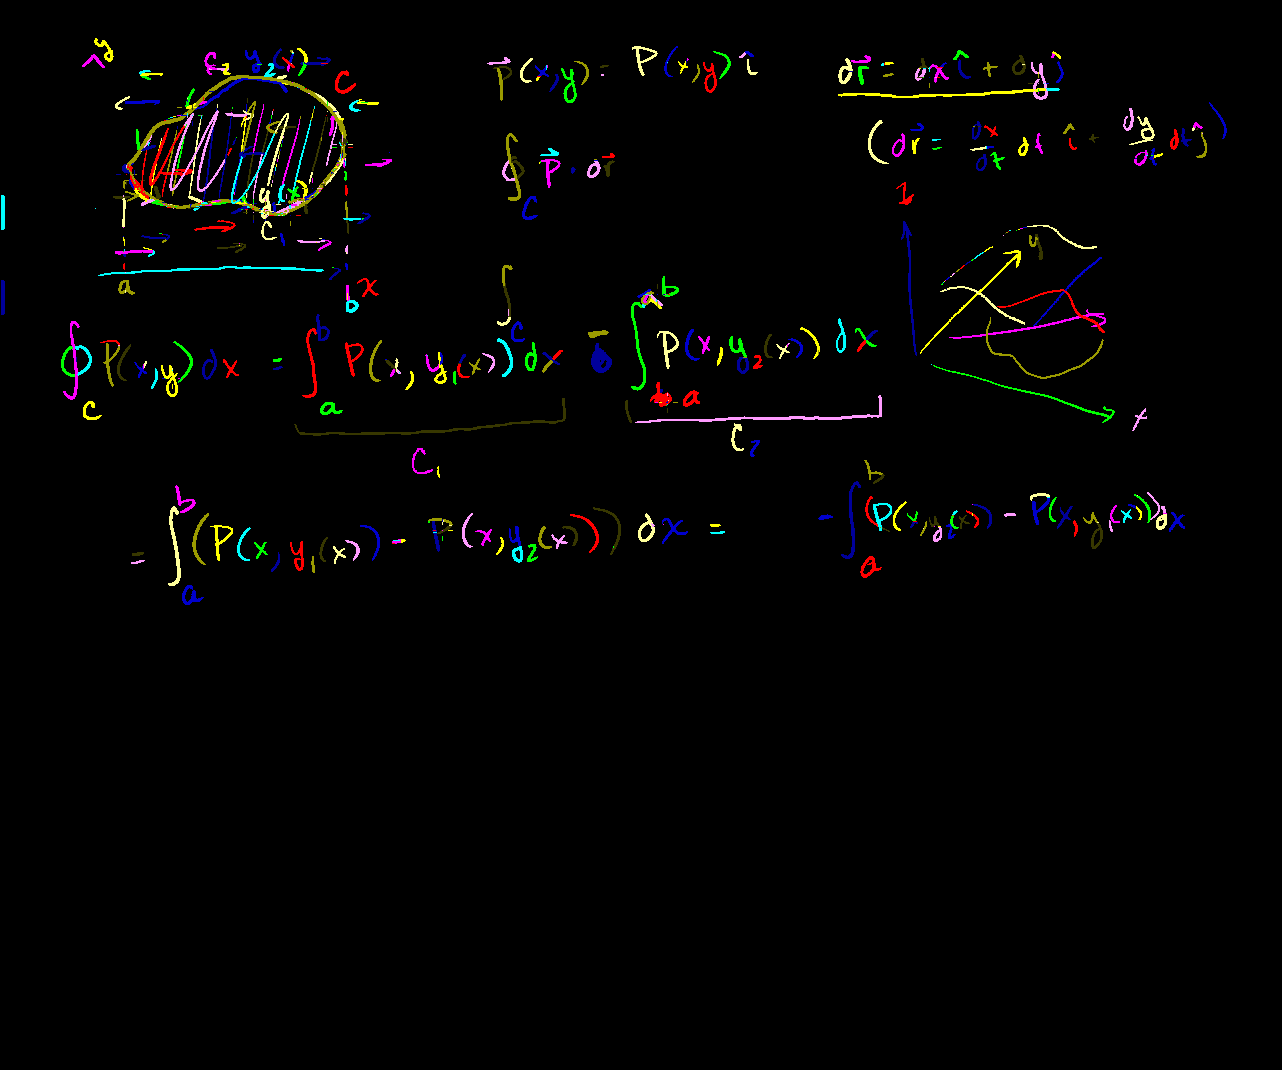 y
C₂ y₂(x)
C
y₁(x)
C₁
a b x
P⃗(x,y) = P(x,y) î
dr⃗ = dx î + dy ĵ
∮_C P⃗ · dr⃗
(dr⃗ = dx/dt dt î + dy/dt dt ĵ)
z
y
x
∫_C
∮_C P(x,y) dx = ∫_a^b P(x, y₁(x)) dx - ∫_a^b P(x, y₂(x)) dx
C₁ C₂
= ∫_a^b (P(x, y₁(x)) - P(x, y₂(x))) dx = - ∫_a^b (P(x, y₂(x)) - P(x, y₁(x))) dx